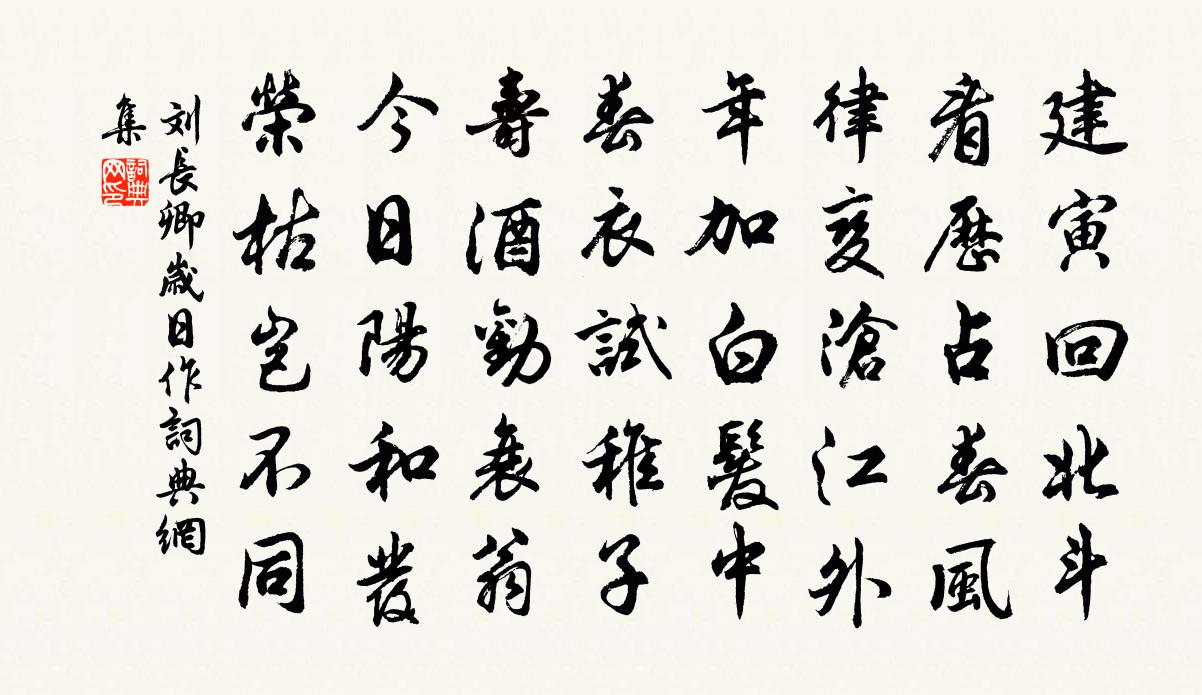 建寅回北斗
看曆占春風
律變滄江外
年加白髮中
春衣試稚子
壽酒勸衰翁
今日陽和發
榮枯豈不同
刘長卿歲日作詞典網
集
詞典
网印